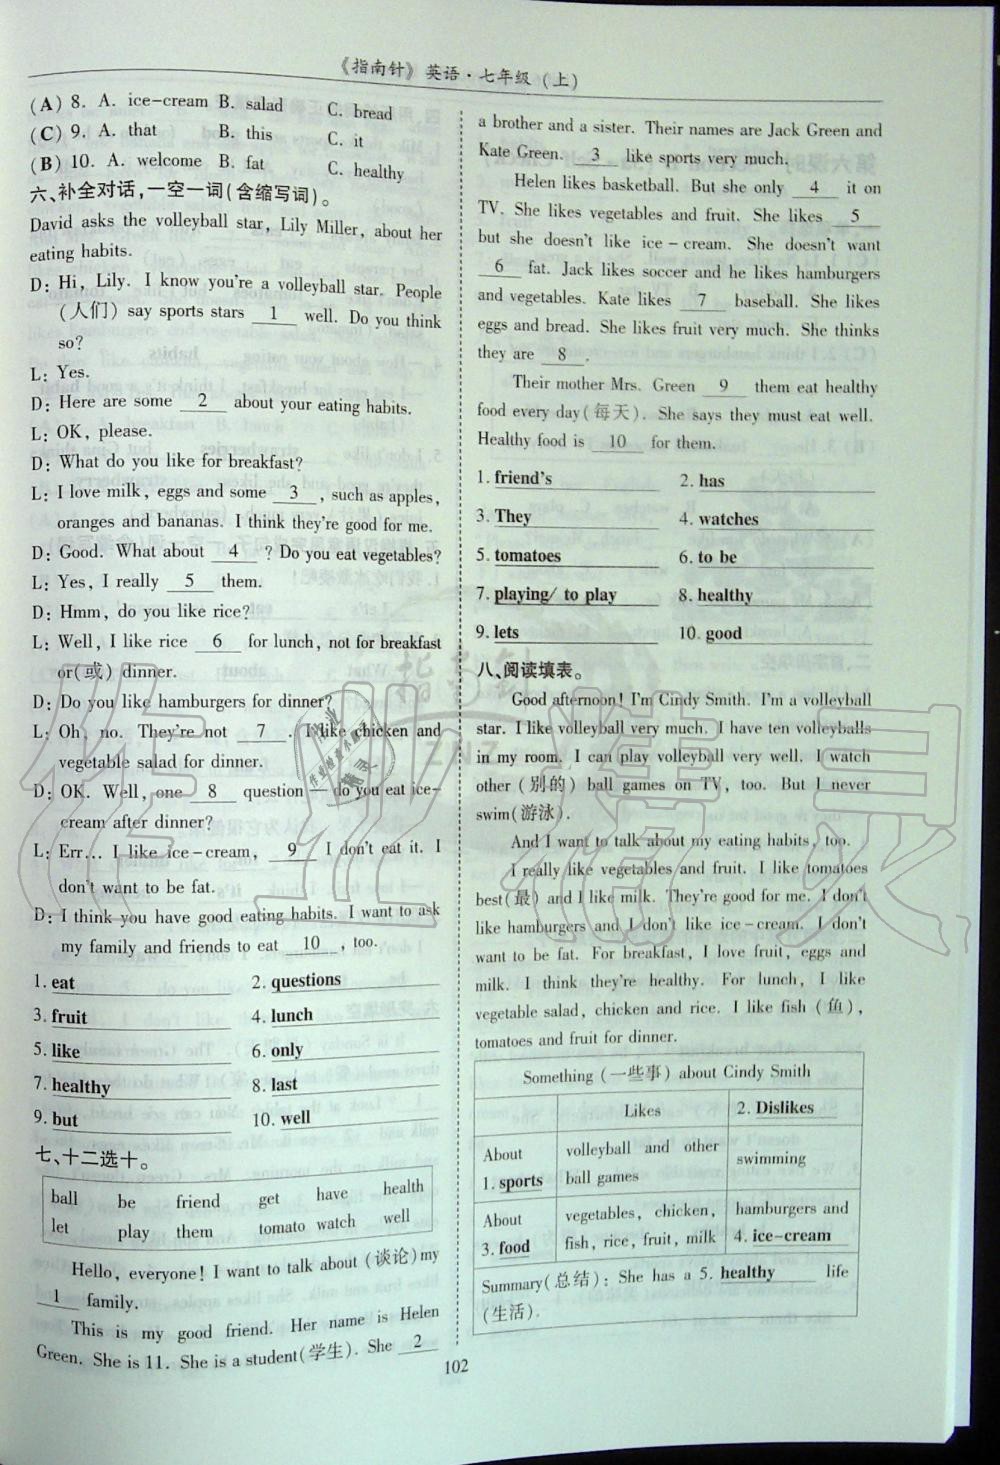 《指南针》英语·七年级(上)
(A) 8. A. ice-cream B. salad C. bread
(C) 9. A. that B. this C. it
(B) 10. A. welcome B. fat C. healthy
六、补全对话,一空一词(含缩写词)。
David asks the volleyball star, Lily Miller, about her
eating habits.
D: Hi, Lily. I know you're a volleyball star. People
(人们) say sports stars 1 well. Do you think
so?
L: Yes.
D: Here are some 2 about your eating habits.
L: OK, please.
D: What do you like for breakfast?
L: I love milk, eggs and some 3 , such as apples,
oranges and bananas. I think they're good for me.
D: Good. What about 4 ? Do you eat vegetables?
L: Yes, I really 5 them.
D: Hmm, do you like rice?
L: Well, I like rice 6 for lunch, not for breakfast
or(或) dinner.
D: Do you like hamburgers for dinner?
L: Oh, no. They're not 7 . I like chicken and
vegetable salad for dinner.
D: OK. Well, one 8 question — do you eat ice-
cream after dinner?
L: Err... I like ice-cream, 9 I don't eat it. I
don't want to be fat.
D: I think you have good eating habits. I want to ask
my family and friends to eat 10 , too.
1. eat 2. questions
3. fruit 4. lunch
5. like 6. only
7. healthy 8. last
9. but 10. well
七、十二选十。
ball be friend get have health
let play them tomato watch well
Hello, everyone! I want to talk about (谈论) my
1 family.
This is my good friend. Her name is Helen
Green. She is 11. She is a student(学生). She 2
a brother and a sister. Their names are Jack Green and
Kate Green. 3 like sports very much.
Helen likes basketball. But she only 4 it on
TV. She likes vegetables and fruit. She likes 5
but she doesn't like ice-cream. She doesn't want
6 fat. Jack likes soccer and he likes hamburgers
and vegetables. Kate likes 7 baseball. She likes
eggs and bread. She likes fruit very much. She thinks
they are 8 .
Their mother Mrs. Green 9 them eat healthy
food every day(每天). She says they must eat well.
Healthy food is 10 for them.
1. friend's 2. has
3. They 4. watches
5. tomatoes 6. to be
7. playing/ to play 8. healthy
9. lets 10. good
八、阅读填表。
Good afternoon! I'm Cindy Smith. I'm a volleyball
star. I like volleyball very much. I have ten volleyballs
in my room. I can play volleyball very well. I watch
other (别的) ball games on TV, too. But I never
swim(游泳).
And I want to talk about my eating habits, too.
I really like vegetables and fruit. I like tomatoes
best(最) and I like milk. They're good for me. I don't
like hamburgers and I don't like ice-cream. I don't
want to be fat. For breakfast, I love fruit, eggs and
milk. I think they're healthy. For lunch, I like
vegetable salad, chicken and rice. I like fish (鱼),
tomatoes and fruit for dinner.
Something (一些事) about Cindy Smith
Likes 2. Dislikes
About
1. sports
volleyball and other
ball games
swimming
About
3. food
vegetables, chicken,
fish, rice, fruit, milk
hamburgers and
4. ice-cream
Summary(总结): She has a 5. healthy life
(生活).
102
作业精灵